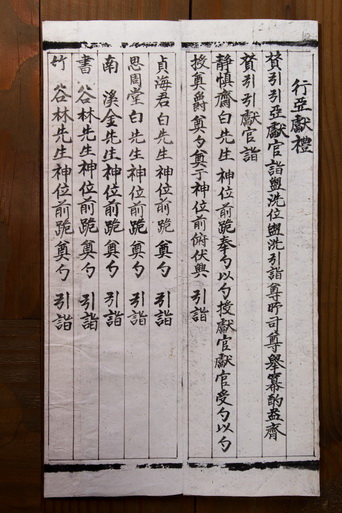 行亞獻禮
贊引引亞獻官詣盥洗位盥洗引詣尊所司尊舉冪酌盎齊
贊引引獻官詣
靜愼齋白先生神位前跪奉勺以勺授獻官獻官受勺以勺
授奠爵奠勺奠于神位前俯伏興 引詣
貞海君白先生神位前跪奠勺 引詣
思周堂白先生神位前跪奠勺 引詣
南溪金先生神位前跪奠勺 引詣
書谷林先生神位前跪奠勺 引詣
竹谷林先生神位前跪奠勺 引詣